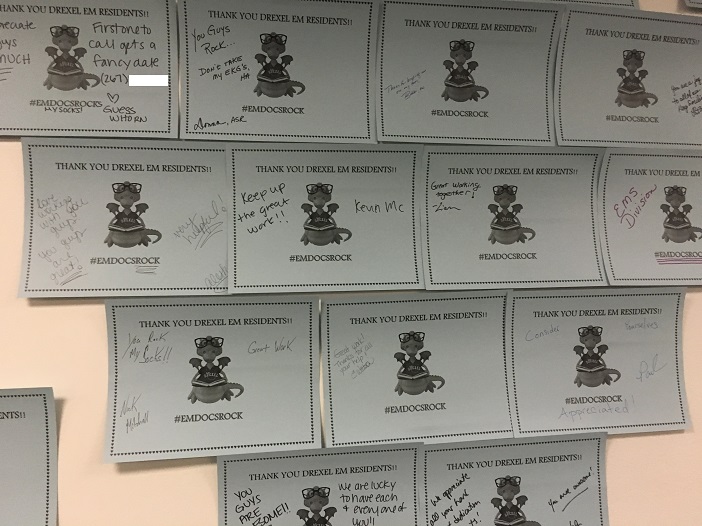 THANK YOU DREXEL EM RESIDENTS!!
UYS
MUCH
First one to
call gets a
fancy date
(267)
♡
Guess
WHO RN
#EMDOCSROCKS
MY SOCKS!
THANK YOU DREXEL EM RESIDENTS!!
You Guys
Rock...
Don't take
my EKG's,
HA
#EMDOCSROCK
THANK YOU DREXEL EM RESIDENTS!!
#EMDOCSROCK
THANK YOU DREXEL EM RESIDENTS!!
#EMDOCSROCK
THANK YOU DREXEL EM RESIDENTS!!
Love
working
with you
guys!
you guys
are
great.
very
helpful!
#EMDOCSROCK
THANK YOU DREXEL EM RESIDENTS!!
Keep up
the great
work!!
Kevin Mc
#EMDOCSROCK
THANK YOU DREXEL EM RESIDENTS!!
Great working
together!
#EMDOCSROCK
THANK YOU DREXEL EM RESI
EMS
Division
#EMDOCSROCK
THANK YOU DREXEL EM RESIDENTS!!
You Rock
My Socks!!
Great Work
Nick
Mitchell
#EMDOCSROCK
THANK YOU DREXEL EM RESIDENTS!!
#EMDOCSROCK
THANK YOU DREXEL EM RESIDENTS!!
Consider
yourselves
Paul
#EMDOCSROCK
Appreciated!
ENTS!!
THANK YOU DREXEL EM RESIDENTS!!
YOU
GUYS
ARE
We are lucky
to have each
+ everyone of
you!!
THANK YOU DREXEL EM RESIDENTS!!
We appreciate
all your hard
dedication
You are awesome!